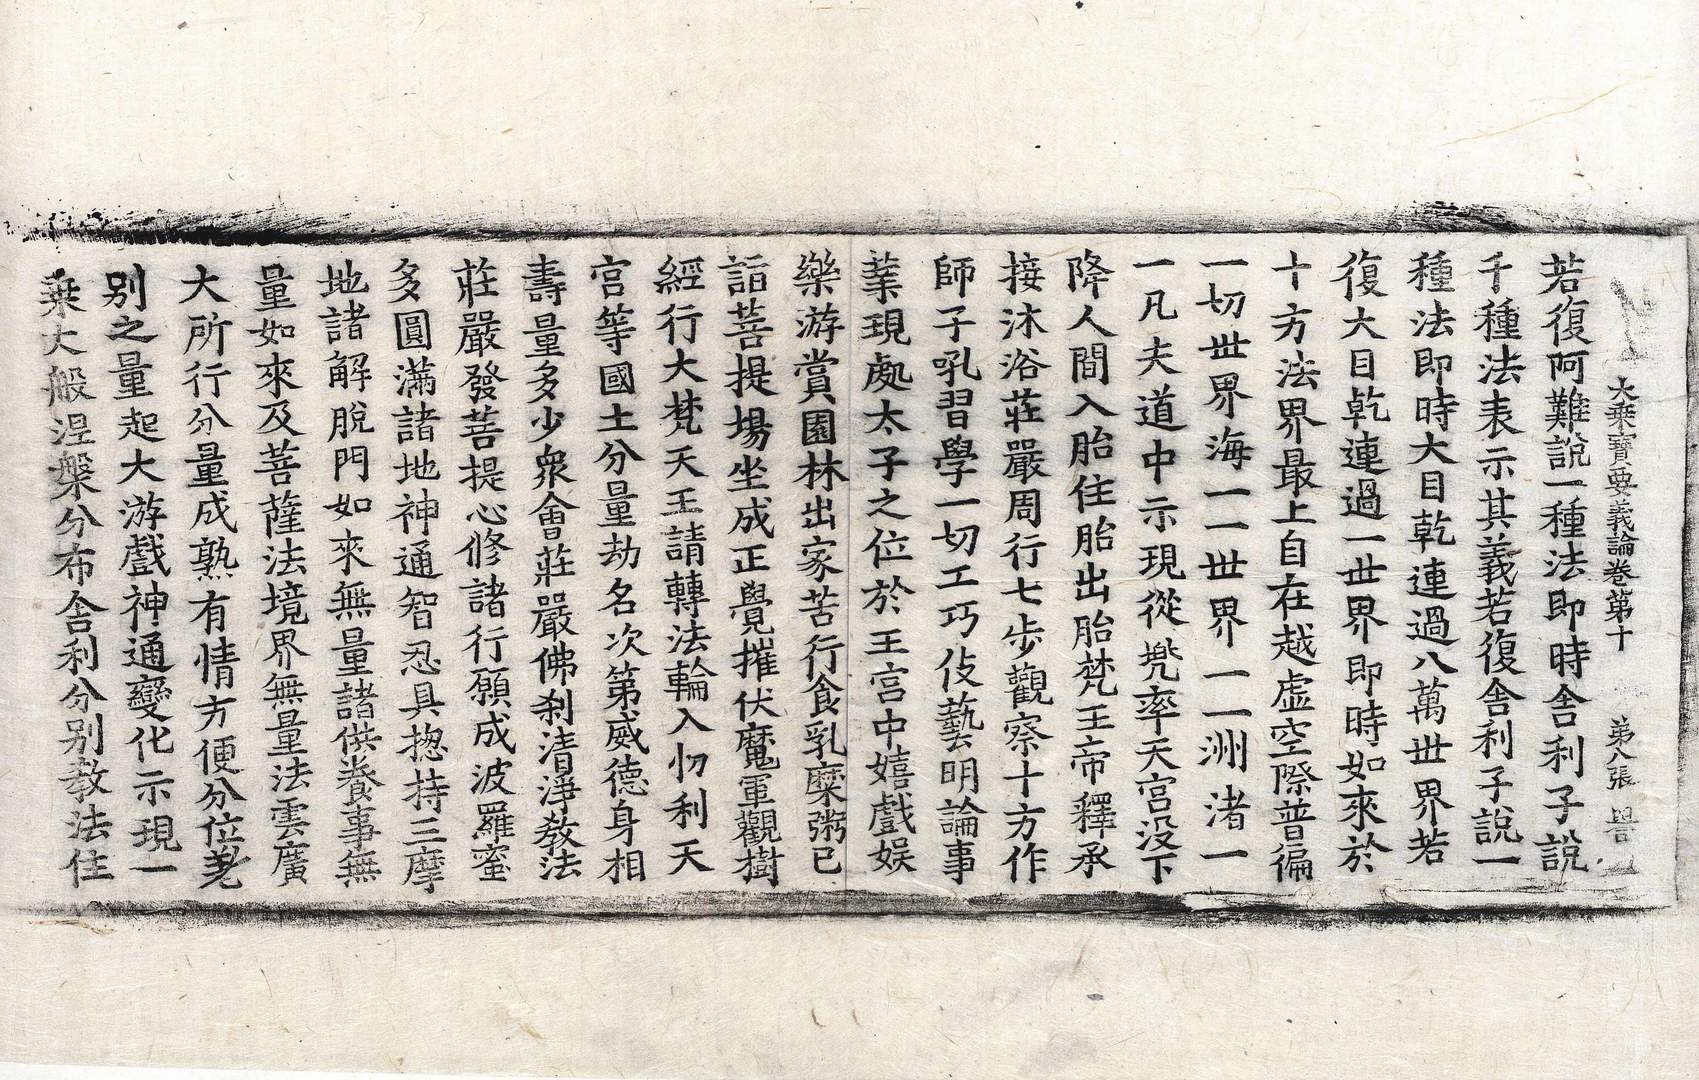 大乘寶要義論卷第十　第八張　譽
若復阿難說一種法即時舍利子說
千種法表示其義若復舍利子說一
種法即時大目乾連過八萬世界若
復大目乾連過一世界即時如來於
十方法界最上自在越虛空際普徧
一切世界海一一世界一一洲渚一
一凡夫道中示現從兠率天宫没下
降人間入胎住胎出胎梵王帝釋承
接沐浴莊嚴周行七步觀察十方作
師子吼習學一切工巧伎藝明論事
業現處太子之位於王宫中嬉戲娱
樂游賞園林出家苦行食乳糜粥已
詣菩提場坐成正覺摧伏魔軍觀樹
經行大梵天王請轉法輪入忉利天
宫等國土分量劫名次第威德身相
壽量多少衆會莊嚴佛刹清淨教法
莊嚴發菩提心修諸行願成波羅蜜
多圓滿諸地神通智忍具揔持三摩
地諸解脫門如來無量諸供養事無
量如來及菩薩法境界無量法雲廣
大所行分量成熟有情方便分位差
别之量起大游戲神通變化示現一
乘大般涅槃分布舍利分别教法住